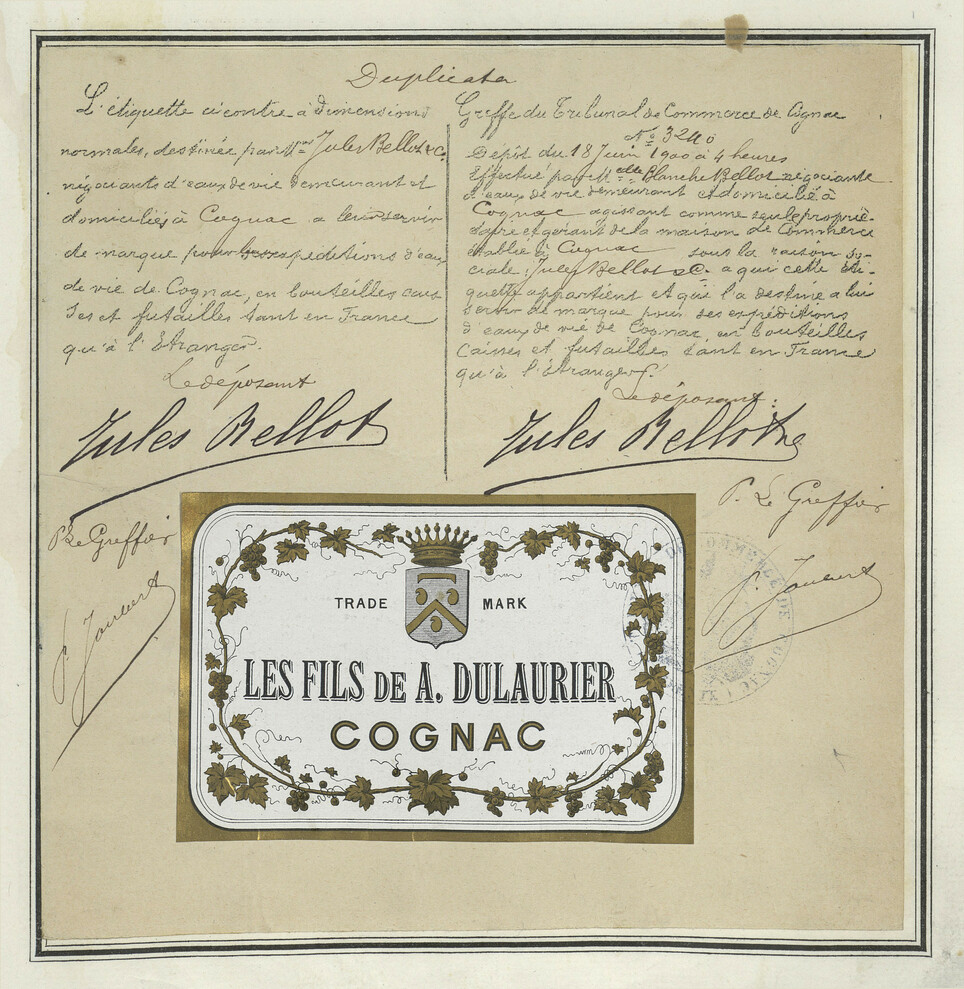 Duplicata
L'étiquette ci contre à dimensions
normales, destinée par Mmes Jules Bellot & Co
négociants d'eaux de vie demeurant et
domiciliés à Cognac a leur servir
de marque pour leurs expéditions d'eaux
de vie de Cognac, en bouteilles cais
ses et futailles tant en France
qu'à l'Étranger.
Le déposant
Jules Bellot
P. Le Greffier
P. Jouvert
Greffe du Tribunal de Commerce de Cognac
No 3240
Dépôt du 18 Juin 1900 à 4 heures
effectué par Melle Blanche Bellot négociante
d'eaux de vie demeurant et domicilié à
Cognac agissant comme seule proprié-
taire et gérant de la maison de Commerce
établie à Cognac sous la raison so-
ciale : Jules Bellot & Co. a qui cette éti-
quette appartient et qui l'a destiné a lui
servir de marque pour ses expéditions
d'eaux de vie de Cognac en bouteilles
Caisses et futailles tant en France
qu'à l'étranger.
Le déposant:
Jules Bellot
P. Le Greffier
P. Jouvert
TRADE MARK
LES FILS DE A. DULAURIER
COGNAC
DE COMMERCE DE COGNAC